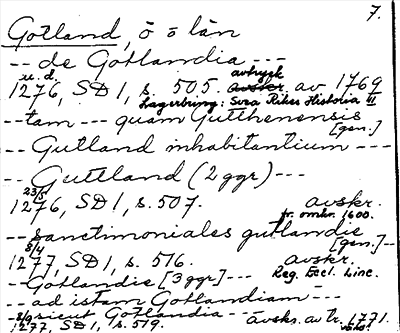 7.
Gotland, ö o län
-- de Gotlandia ---
u. d. avtryck
1276, SD 1, s. 505. avskr. av 1769
Lagerbring: Svea Rikes Historia III
-- tam --- quam Gutthenensis
[gen.]
-- Gutland inhabitantium ---
-- Guttland (2 ggr) ---
23/5
1276, SD 1, s. 507. avskr.
fr. omkr. 1600.
-- sanctimoniales gutlandie
[gen.] --
8/4
1277, SD 1, s. 516. avskr.
Reg. Eccl. Linc.
-- Gotlandie [3 ggr] ---
-- ad istam Gotlandiam ---
-- sicut Gotlandia --
1277, SD 1, s. 519. avskr. av tr. 1771.